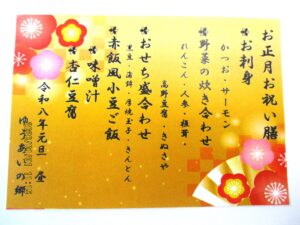 お正月お祝い膳
お刺身
かつお・サーモン
野菜の炊き合わせ
れんこん・人参・椎茸・
高野豆腐・きぬさや
おせち盛合わせ
黒豆・海鮮・厚焼玉子・きんとん
赤飯風小豆ご飯
味噌汁
杏仁豆腐
令和八年元旦 昼
ゆきあいの郷